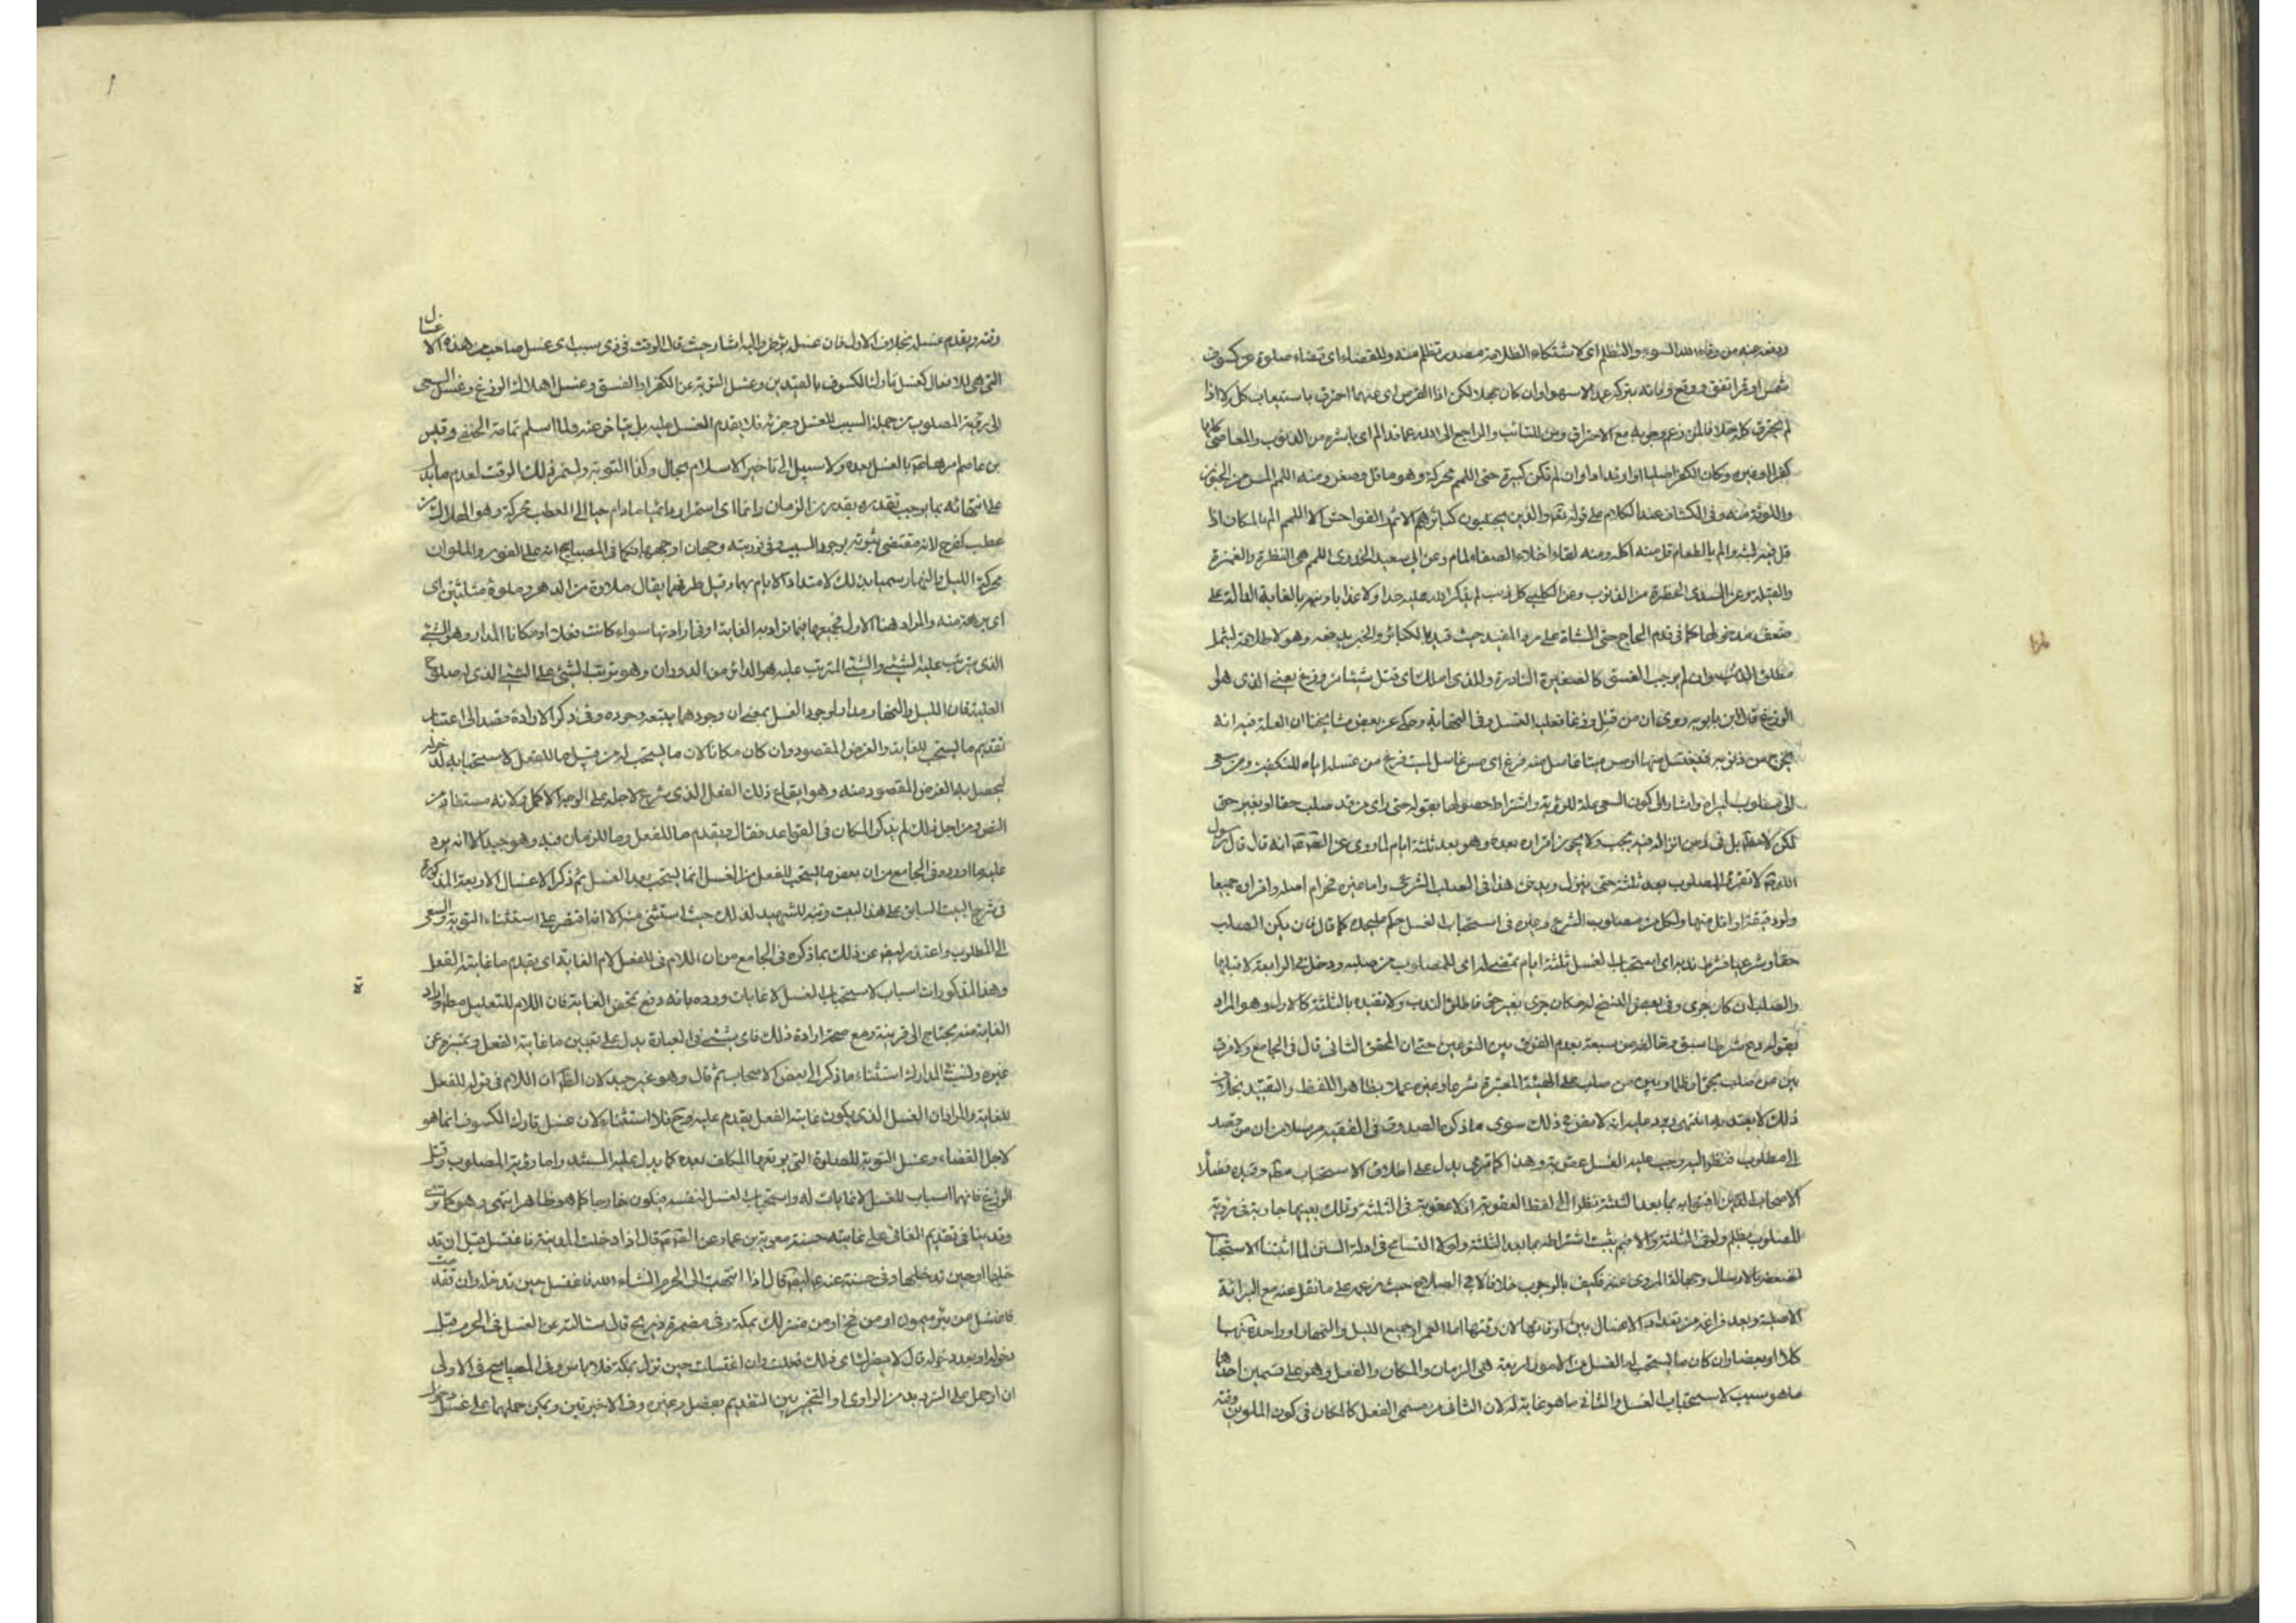 ودفعه عنه من وقاه الله السوء والتظلم اى لاشتكاء الظلامة مصدر تظلم منه وللقضاء اى قضاء صلوة عن كسوف
شمس او قمر اتفق ووقع وبانه بتركه عمدا لا سهوا وان كان جهلا لكن اذا القرص اى عنهما احترق باستيعاب كل لا اذا
لم يحترق كله خلافا لمن زعم وجوبه مع الاحتراق ومن للتائب والراجع الى الله عما قد الم اى باشره من الذنوب والمعاصى كان
كفرا او غيره وكان الكفر اصليا او ارتدادا وان لم تكن كبيرة حتى اللمم محركة وهو ما قل وصغر ومنه اللمم المس من الجنون
واللوثة منه وفى الكشاف عند الكلام على قوله تعالى والذين يجتنبون كبائر الاثم والفواحش الا اللمم الم بالمكان اذا
قل فيه لبثه والم بالطعام قل منه اكله ومنه لقاء اخلاء الصفاء لمام وعن ابى سعيد الخدرى اللمم هى النظرة والغمزة
والقبلة وعن السدى الخطرة من الذنوب وعن الكلبى كل ذنب لم يذكر الله عليه حدا ولا عذابا
ضعف مدخولها كما فى قدم الحاج حتى المشاة على رد المفيد حيث قيد بالكبائر والخبر يدفعه وهو لاطلاقه يشمل
مطلق الذنب وان لم يوجب الفسق كالصغيرة النادرة وللذى اهلك اى قتل شيئا من وزغ يعنى الذى هو
الوزغ قال ابن بابويه روى ان من قتل وزغا فعليه الغسل وفى النهاية وحكى عن بعض مشايخنا ان العلة فيه انه
يخرج من ذنوبه فيغتسل منها او مس ميتا غاسل منه فرغ اى مس غاسل الميت فرغ من غسله اياه للتكفين ومن سعى
الى مصلوب ليراه واشار الى كون السعى علة للرؤية واشتراط حصولها بقوله حتى راى من قد صلب حقا او بغير حق
لكن لا مطلقا بل فى زمن انزاله فيه يجب ولا يجوز اقراره بعده وهو بعد ثلثة ايام لما روى عن الصادق انه قال قال رسول
الله لا تقروا المصلوب بعد ثلثة حتى ينزل ويدفن هذا فى الصلب الشرعى واما غيره فحرام اصله واقراره جميعا
ولو دقيقة او اقل منها ولكل من مصلوب الشرع وغيره فى استحباب الغسل حكم عليحده كما قال فان يكن الصلب
حقا وشرعيا فشرط ندبه اى استحباب الغسل ثلثة ايام تمضى له اى للمصلوب من صلبه ودخل فى الرابعة لا قبلها
والصلب ان كان جرى وفى بعض النسخ له مكان جرى بغير حق فاطلق الندب ولا تقيده بالثلثة كالاول وهو المراد
بقوله دع شرط ما سبق وخالف من سبعة بعدم الفرق بين النوعين حتى ان المحقق الثانى قال فى الجامع ولا فرق
بين من صلب بحق او ظلما وبين من صلب على الهيئة المعتبرة شرعا وغيره عملا بظاهر اللفظ والتقييد بخلاف
ذلك لا يعتد به انتهى ويرد عليه انه لا نص فى ذلك سوى ما ذكره الصدوق فى الفقيه مرسلا من ان من قصد
الى مصلوب فنظر اليه وجب عليه الغسل عقوبة وهذا كما ترى يدل على اطلاق الاستحباب مطلقا وقيده فضلاء
الاصحاب الذين افتوا به بما بعد الثلثة نظرا الى لفظ العقوبة اذ لا عقوبة فى الثلثة وتلك بعينها جارية فى رؤية
المصلوب بظلم ولو فى الثلثة والا فلم يثبت اشتراطه بما بعد الثلثة ولولا التسامح فى ادلة السنن لما اثبتنا الاستحباب
لضعفه بالارسال وجهالة المروى عنه فكيف بالوجوب خلافا لابى الصلاح حيث زعمه على ما نقل عنه مع البراءة
الاصلية وبعد فراغه من تعداد الاغسال بين اوقاتها لان وقتها اما العمر او جميع الليل والنهار او واحد منهما
كلا او بعضا وان كان ما يستحب له الغسل من الامور اربعة هى الزمان والمكان والفعل وهو على قسمين احدهما
ما هو سبب لاستحباب الغسل والثانى ما هو غاية له لان الثانى من سمى الفعل كالمكان فى كون الملوين وقته
وقته ويقدم غسله بخلاف الاول فان غسله يؤخر واليه اشار حيث قال الوقت فى ذى سبب اى غسل صاحب من هذه الاغسال
التى هى للافعال كغسل تارك الكسوف بالقيدين وغسل التوبة عن الكفر او الفسق وغسل اهلاك الوزغ وغسل السعى
الى رؤية المصلوب من جملة السبب للغسل وجزئه فلا يقدم الغسل عليه بل يتاخر عنه ولما اسلم ثمامة الحنفى وقيس
بن عاصم امرهما بالغسل بعده ولا سبيل الى تاخير الاسلام بحال وكذا التوبة وليستمر ذلك الوقت لعدم ما يدل
على انتهائه بما يوجب تقديره بقدر من الزمان وانما اى استمراره دائما ما دام حيا الى العطب محركة وهو الهلاك من
عطب كفرح لانه مقتضى ثبوته بوجود السبب وفى فوريته وجهان اوجههما كما فى المصابيح انه على الفور والملوان
محركة الليل والنهار سميا بذلك لامتداد الايام بهما وقيل طرفهما يقال ملاوة من الدهر وملوة مثلثتين اى
اى برهة منه والمراد هنا الاول فجميعها فيما تراد به الغاية او فى ارادتها سواء كانت فعلا او مكانا المدار وهو الشئ
الذى يترتب عليه الشئ والشئ المترتب عليه هو الدائر من الدوران وهو ترتب الشئ على الشئ الذى له صلوح
العلية فان الليل والنهار مدار لوجود الغسل بمعنى ان وجودهما يتبعه وجوده وفى ذكر الارادة قصد الى اعتبار
تقديم ما يستحب للغاية والغرض المقصود وان كان مكانا لان ما يستحب له من قبيل ما للفعل لاستحبابه لدخوله
ليحصل به الغرض المقصود منه وهو ايقاع ذلك الفعل الذى شرع لاجله على الوجه الاكمل ولانه مستفاد من
النص ومن اجل ذلك لم يذكر المكان فى القواعد فقال ويقدم ما للفعل وما للزمان فيه وهو جيد الا انه يرد
عليه ما اورده فى الجامع من ان بعض ما يستحب للفعل من الغسل انما يستحب بعد الغسل ثم ذكر الاغسال الاربعة المذكورة
فى شرح البيت السابق على هذا البيت وتنبه الشهيد لذلك حيث استثنى منه الا انه اقتصر على استثناء التوبة والسعى
الى المصلوب واعتذر بعض عن ذلك بما ذكره فى الجامع من ان اللام فى للفعل لام الغاية اى يقدم ما غايته الفعل
وهذا المذكورات اسباب لاستحباب الغسل لا غايات ورده بانه دفع بمحض العناية فان اللام للتعليل مطلقا واراد
الغاية منه يحتاج الى قرينة ومع صحة ارادة ذلك فاى شئ فى العبارة يدل على تعيين ما غايته الفعل وتميزه عن
غيره ونسب فى المدارك استثناء ما ذكر الى بعض الاصحاب ثم قال وهو غير جيد لان الظاهر ان اللام فى قوله للفعل
للغاية والمراد ان الغسل الذى يكون غايته الفعل يقدم عليه وح فلا استثناء لان غسل تارك الكسوف انما هو
لاجل القضاء وغسل التوبة للصلوة التى يوقعها المكلف بعده كما يدل عليه المستند واما رؤية المصلوب وقتل
الوزغ فانهما اسباب للغسل لا غايات له واستحباب الغسل لنفسه فيكون خارجا كما هو ظاهر انتهى وهو كما ترى
وقد بينا فى تقديم الغائى على غايته حسنة معوية بن عمار عن الصادق قال اذا دخلت المدينة فاغتسل قبل ان تد
خلها او حين تدخلها وفى حسنة عنه قال اذا انتهيت الى الحرم انشاء الله فاغتسل حين تدخله وان تقدمت
فاغتسل من بئر ميمون او من فخ او من منزلك بمكة وفى مضمرة ذريح قال سالته عن الغسل فى الحرم قبل
دخوله او بعد دخوله قال لا يضرك اى ذلك فعلت وان اغتسلت حين تنزل بمكة فلا باس وفى المصابيح فى الاولى
ان او حمل على الترديد من الراوى او التخيير بين التقديم بفصل وغيره وفى الاخيرتين ويمكن حملهما على غسل دخول